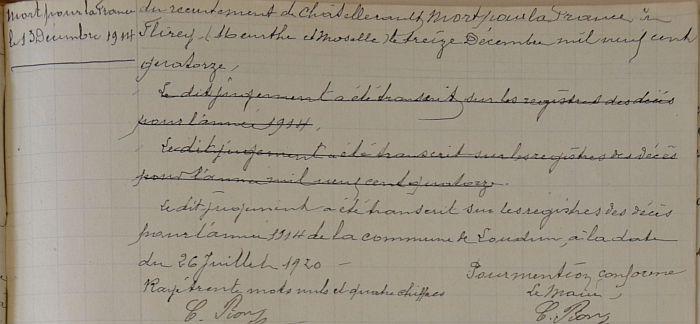 Mort pour la France
le 13 Decembre 1914
du recrutement de Châtellerault, Mort pour la France à
Flirey (Meurthe et Moselle) le treize Décembre mil neuf cent
quatorze,
Le dit jugement a été transcrit sur les registres des décès
pour l'année 1914.
Le dit jugement a été transcrit sur les registres des décès
pour l'anne mil neuf cent quatorze.
Le dit jugement a été transcrit sur les registres des décès
pour l'année 1914 de la commune de Loudun, à la date
du 26 Juillet 1920 -
Rayé trente mots nuls et quatre chiffres
Pour mention conforme
Le Maire,